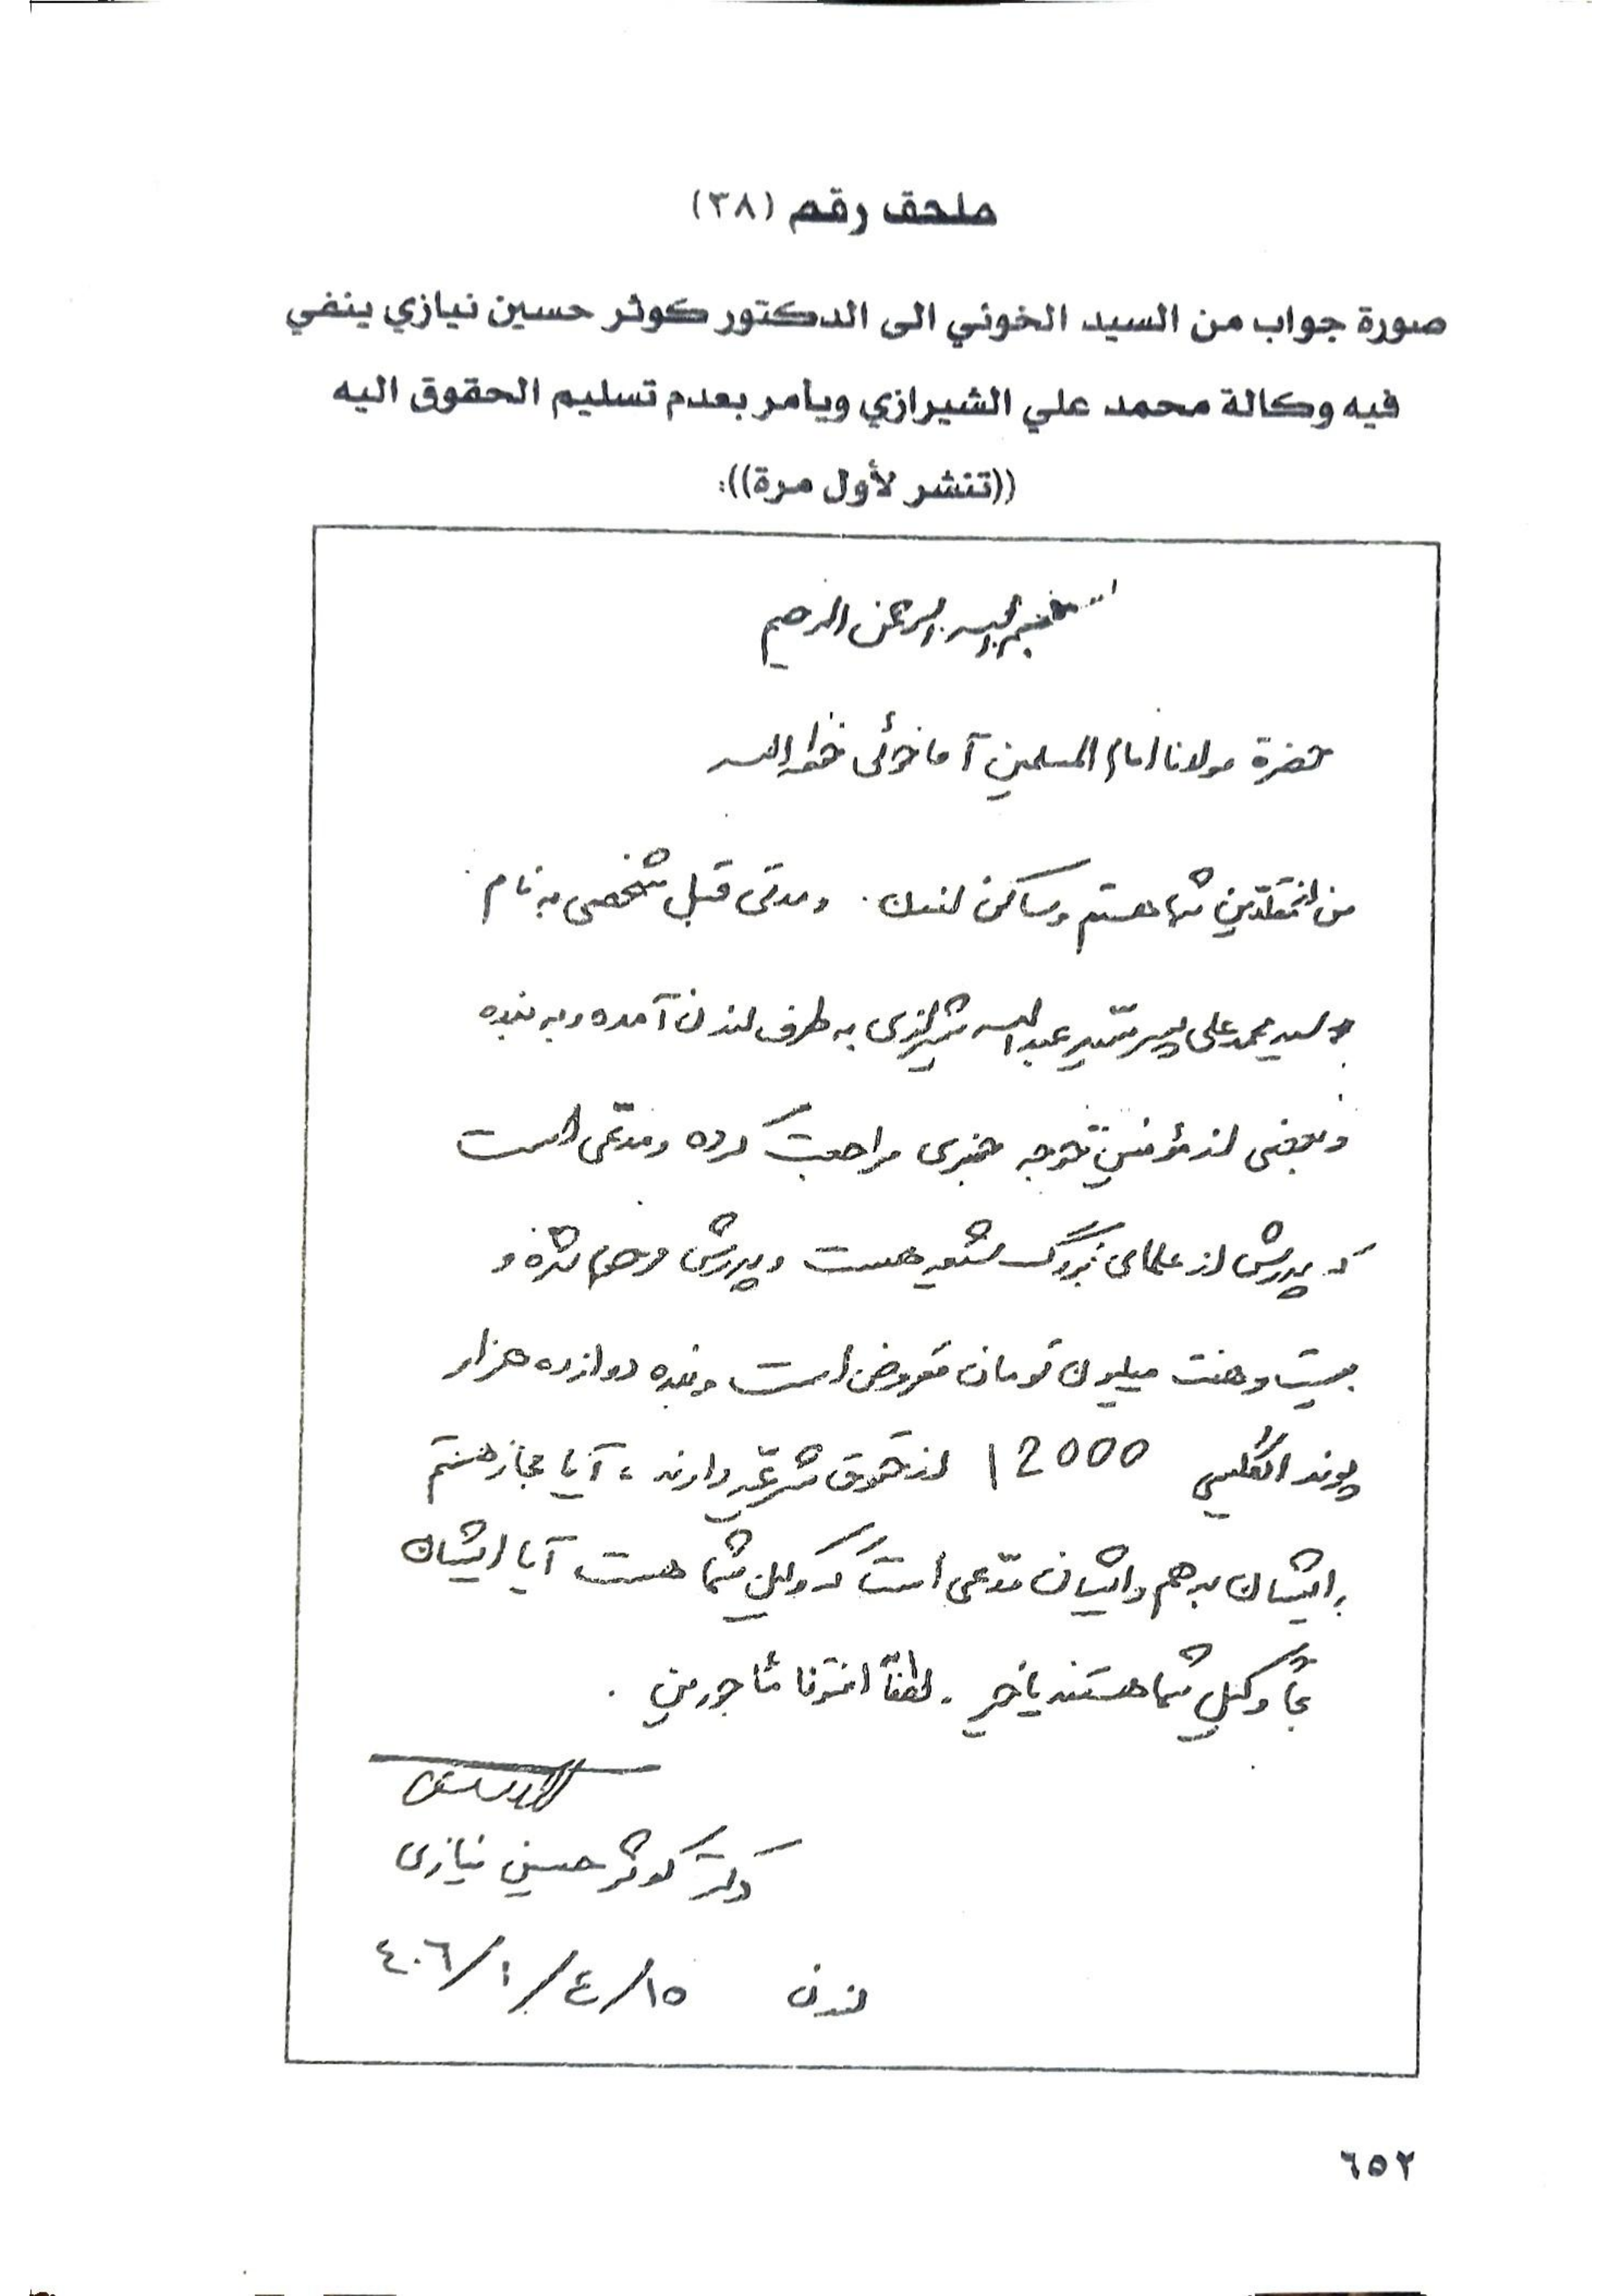 ملحق رقم (٣٨)
صورة جواب من السيد الخوئي الى الدكتور كوثر حسين نيازي ينفي
فيه وكالة محمد علي الشيرازي ويأمر بعدم تسليم الحقوق اليه
((تنشر لأول مرة)):
بسم الله الرحمن الرحيم
حضرة مولانا امام المسلمين آقا خوئی
من از مقلدین شما هستم وساکن لندن. ومدتی قبل شخصی به نام
سید محمد علی پسر سید عبدالله شیرازی به طرف لندن آمده و به بنده
وبعضی از مؤمنین خوجه مراجعت کرده ومدّعی است
که پدرش از علمای بزرگ شیعه هست وپدرش مرحوم شده و
بیست وهفت میلیون تومان مقروض است وبنده دوازده هزار
پوند انگلیسی 12000 از حقوق شرعیّه دارند، آیا مجاز هستم
به ایشان بدهم وایشان مدّعی است که وکیل شما هست آیا ایشان
وکیل شما هستند یا خیر. لطفاً افتونا مأجورین.
دکتر کوثر حسین نیازی
لندن ١٥/٤/١٠/٤٠٦
٦٥٢